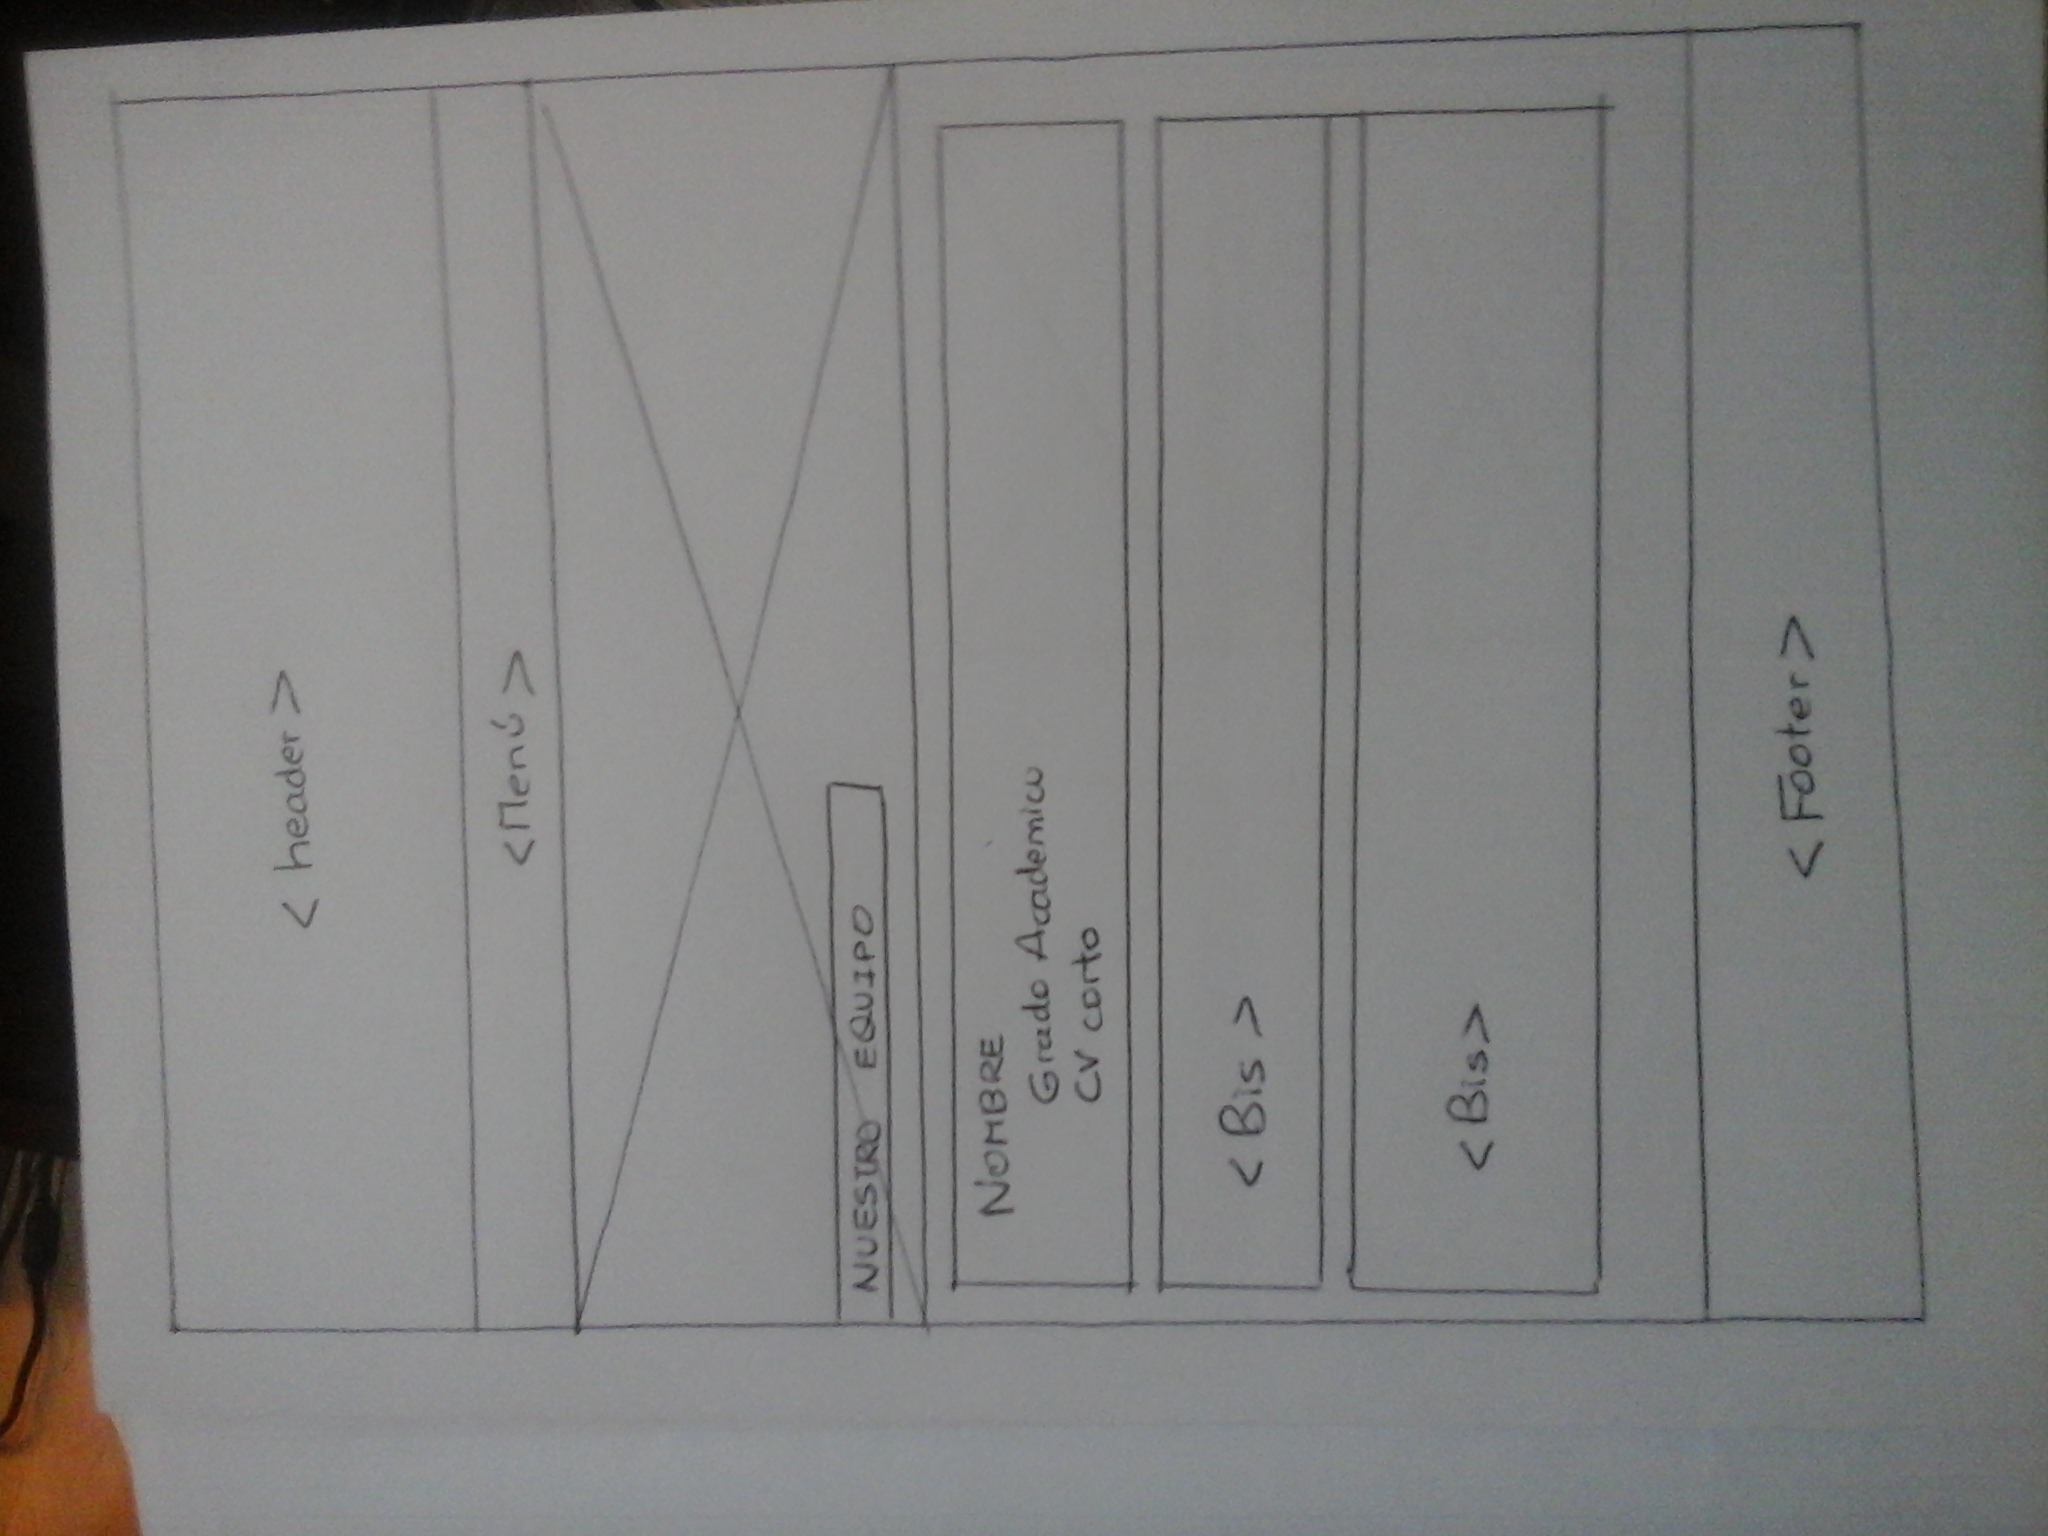 < header >
<Menú >
NUESTRO EQUIPO
NOMBRE
Grado Academico
CV corto
< Bis >
<Bis>
< Footer >